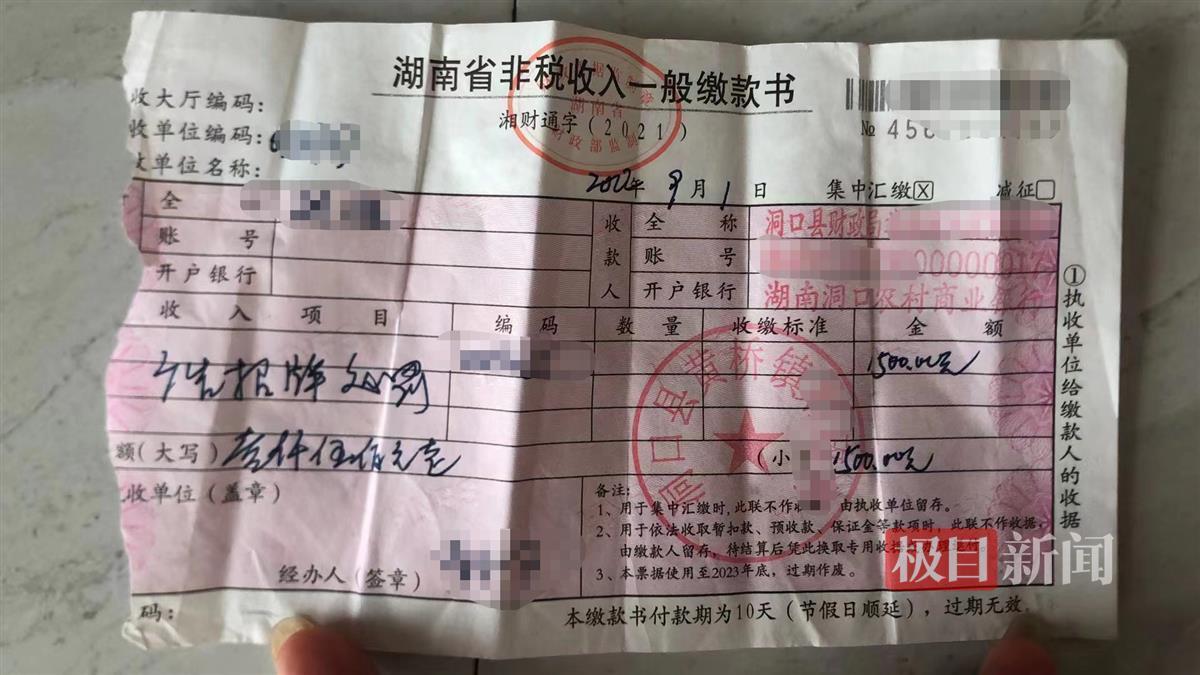 湖南省非税收入一般缴款书
湘财通字(2021)
收大厅编码:
收单位编码:
收单位名称:
№ 458
2022年 9月 1日 集中汇缴☒ 减征☐
全
账 号
开户银行
收款人
全 称 洞口县财政局
账 号 00000001
开户银行 湖南洞口农村商业银行
收 入 项 目 编 码 数 量 收缴标准 金 额
广告招牌 1500.00元
额(大写) 壹仟伍佰元 (小 1500.00元
收单位(盖章)
经办人(签章)
备注:
1、用于集中汇缴时,此联不作收 由执收单位留存。
2、用于依法收取暂扣款、预收款、保证金等款项时,此联不作收据,
由缴款人留存,待结算后凭此换取专用收
3、本票据使用至2023年底,过期作废。
码:
本缴款书付款期为10天(节假日顺延),过期无效。
①执收单位给缴款人的收据
湖南省
财政部监制
洞口县黄桥镇
极目新闻